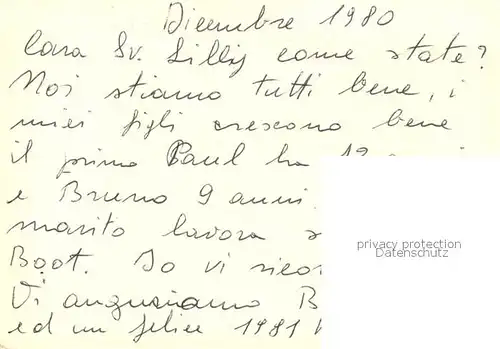 Dicembre 1980
Cara Sv. Lilly come state?
Noi stiamo tutti bene, i
miei figli crescono bene
il primo Paul ha 12
e Bruno 9 anni.
marito lavora s
privacy protection
Datenschutz
Boot. Io vi ricor
Vi auguriamo B
ed un felice 1981